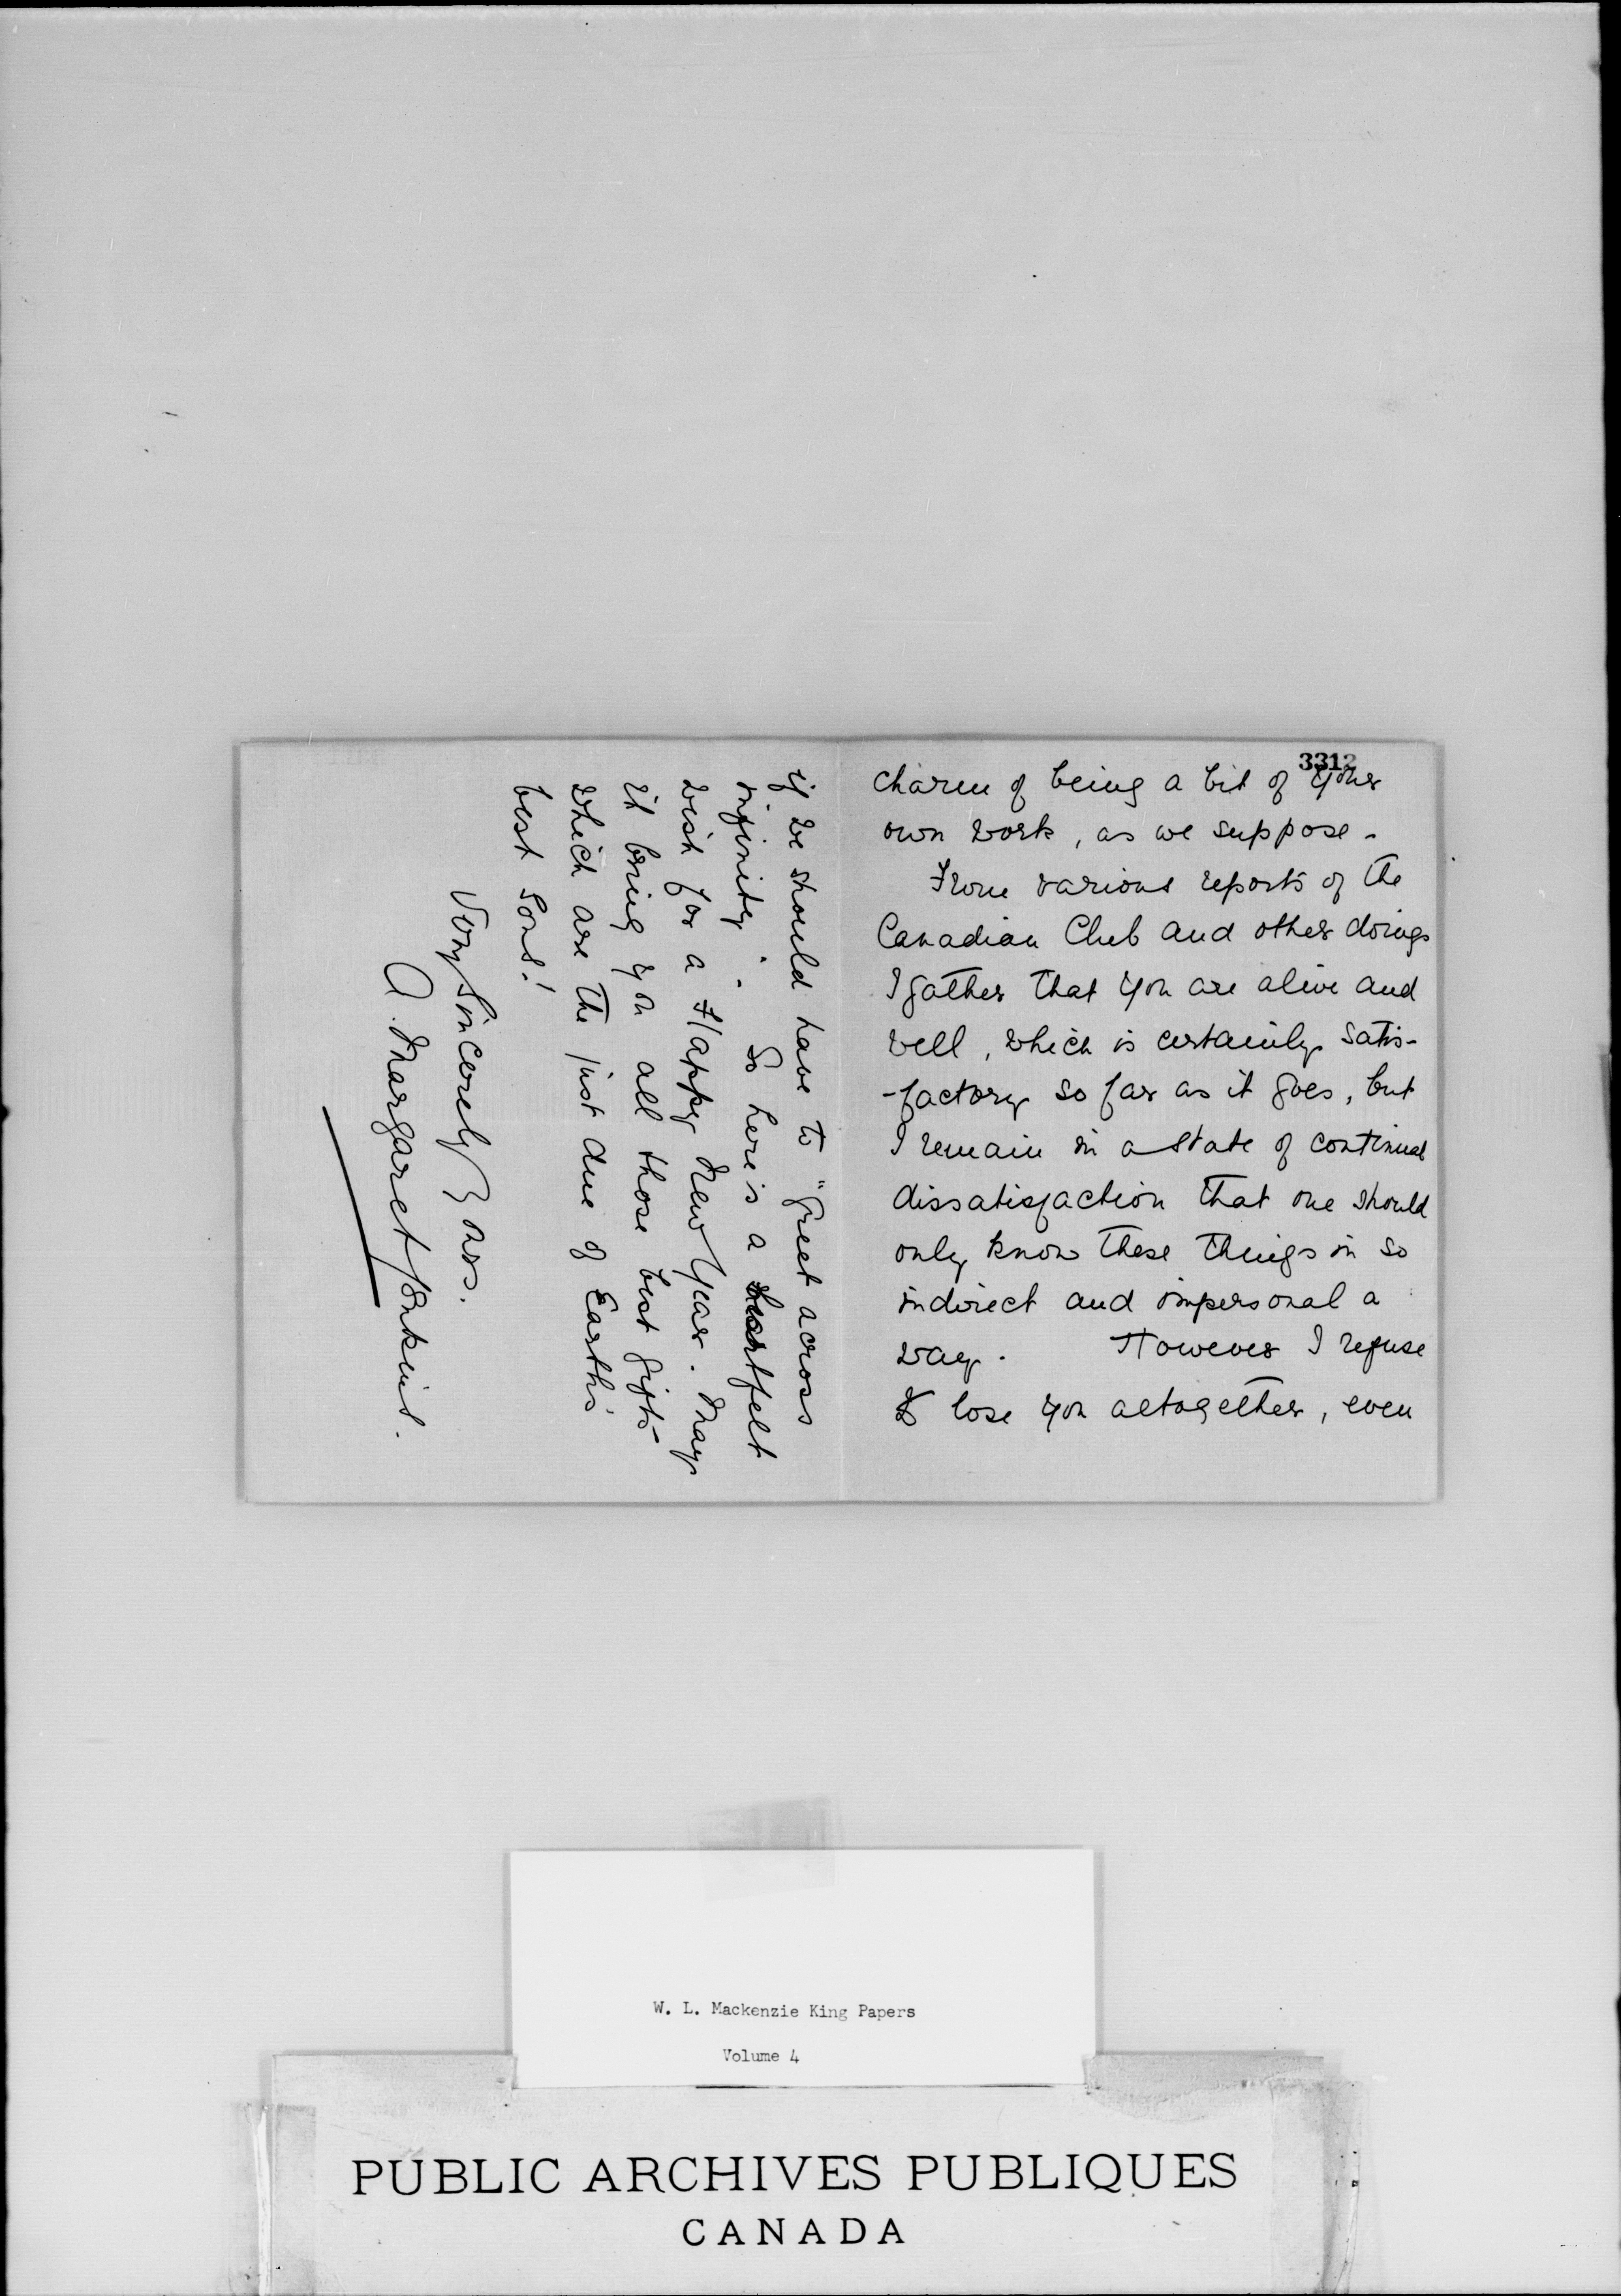 3313
charm of being a bit of your
own work, as we suppose.
From various reports of the
Canadian Club and other doings
I gather that you are alive and
well, which is certainly satis-
-factory so far as it goes, but
I remain in a state of continual
dissatisfaction that one should
only know these things in so
indirect and impersonal a
way. However I refuse
to lose you altogether, even
if we should have to "greet across
infinity". So here is a heartfelt
wish for a Happy New Year. May
it bring you all those best gifts
which are the just due of Earth's
best sons!
Very Sincerely Yours.
A. Margaret Jenkins.
W. L. Mackenzie King Papers
Volume 4
PUBLIC ARCHIVES PUBLIQUES
CANADA